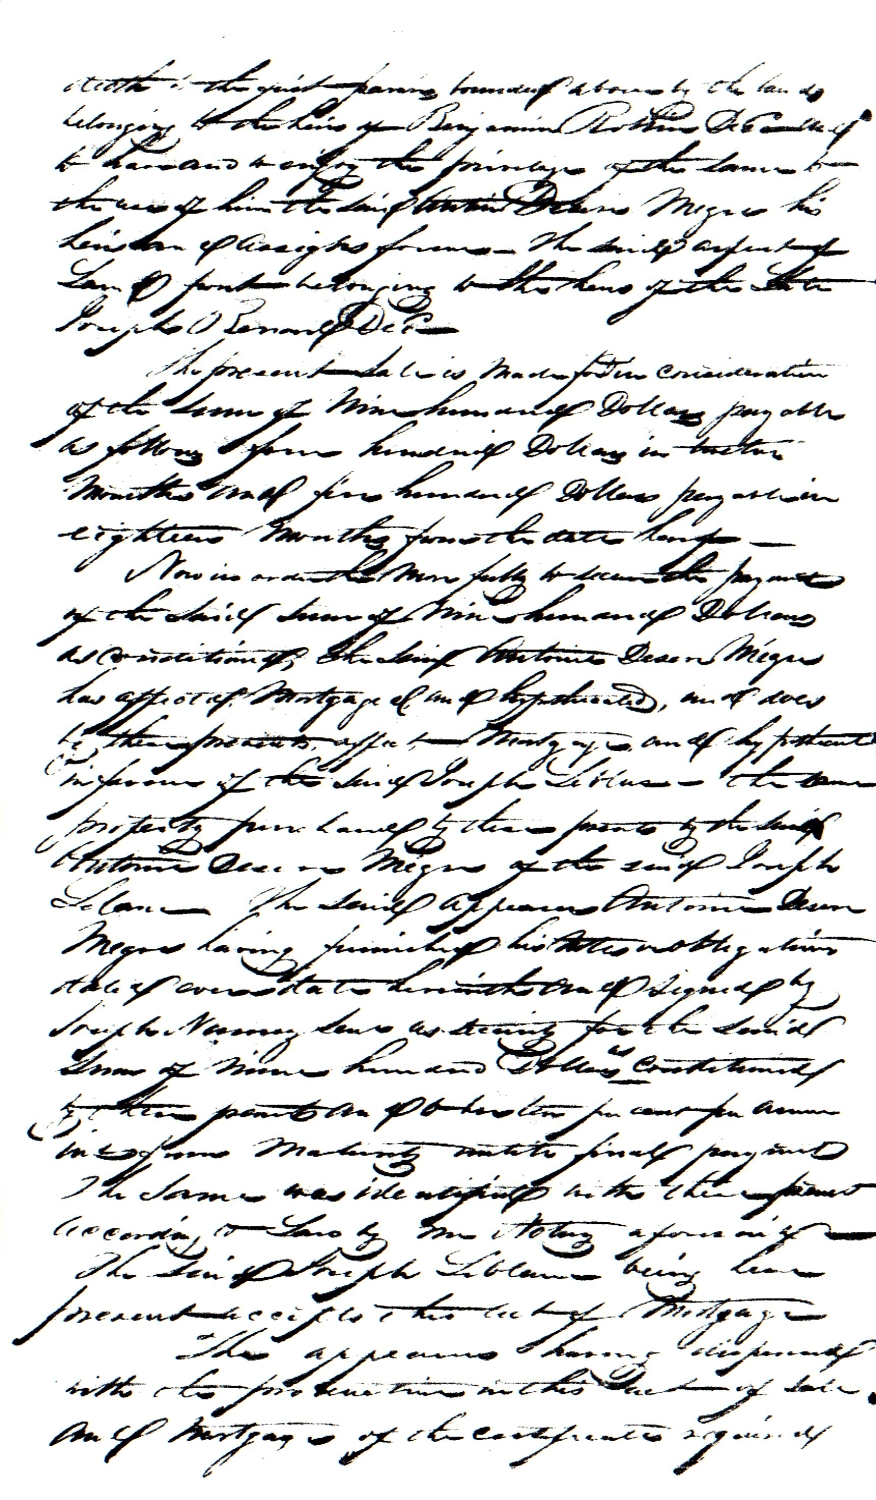 death to the said parish, bounded above by the lands
belonging to the heirs of Benjamin Robins Decd
to have and to enjoy the privilege of the same to
the use of him the said Antoine Desire Megre his
heirs and assigns forever — The said arpent of
Land front belonging to the heirs of the late
Joseph Decd
The present Sale is made for & in consideration
of the sum of Nine hundred Dollars payable
as follows four hundred Dollars in twelve
Months and five hundred Dollars payable in
eighteen Months from the date hereof —
Now in order the more fully to secure the payment
of the said sum of Nine hundred Dollars
as conditioned, the said Antoine Desire Mégre
has affected Mortgaged and hypothecated, and does
by these presents, affect Mortgage and hypothecate
in favour of the said Joseph Leblanc — the same
property purchased by these presents by the said
Antoine Desire Mégre of the said Joseph
Leblanc — The said Appearer Antoine Desire
Megre having furnished his Notes or obligations
dated even date herewith and signed by
Joseph as security for the said
Sum of Nine hundred Dollars as Conditioned
by these presents and to bear ten per cent per annum
int from Maturity until final payment
The Same was identified with these present
according to Law by me Notary aforesaid —
The said Joseph Leblanc being here
present accepts this act of Mortgage
The appearers having dispensed
with the production in this act of sale
and Mortgage of the certificate required